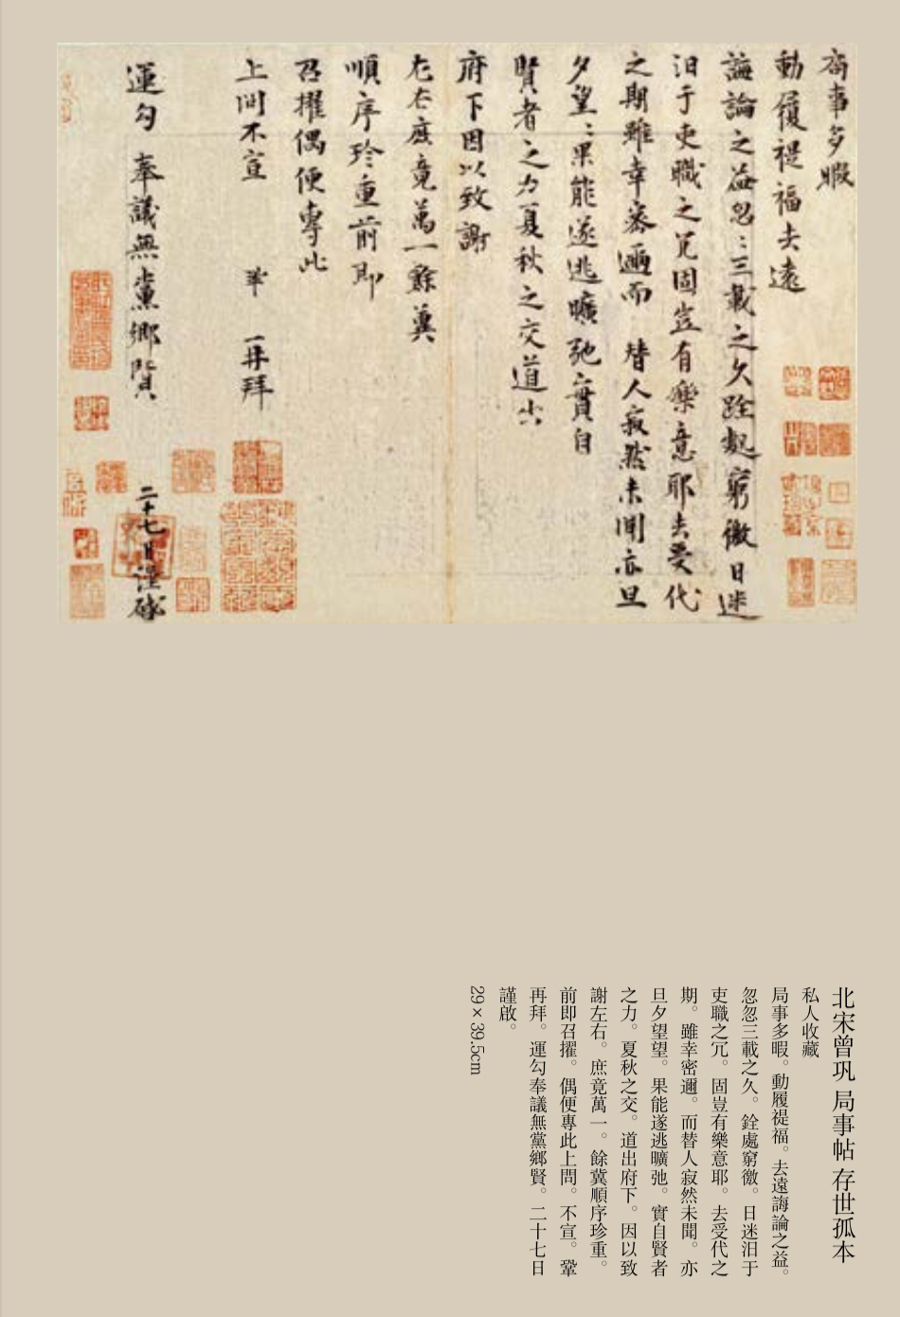 局事多暇
動履禔福去遠
誨論之益忽〻三載之久跧處窮徼日迷
汨于吏職之冗固豈有樂意耶去受代
之期雖幸密邇而替人寂然未聞亦旦
夕望〻果能遂逃曠弛實自
賢者之力夏秋之交道出
府下因以致謝
左右庶竟萬一餘冀
順序珍重前即
召擢偶便專此
上問不宣 鞏 再拜
運勾 奉議無黨鄉賢 二十七日謹啟
北宋曾巩 局事帖 存世孤本
私人收藏
局事多暇。動履禔福。去遠誨論之益。
忽忽三載之久。銓處窮徼。日迷汨于
吏職之冗。固豈有樂意耶。去受代之
期。雖幸密邇。而替人寂然未聞。亦
旦夕望望。果能遂逃曠弛。實自賢者
之力。夏秋之交。道出府下。因以致
謝左右。庶竟萬一。餘冀順序珍重。
前即召擢。偶便專此上問。不宣。鞏
再拜。運勾奉議無黨鄉賢。二十七日
謹啟。
29×39.5cm